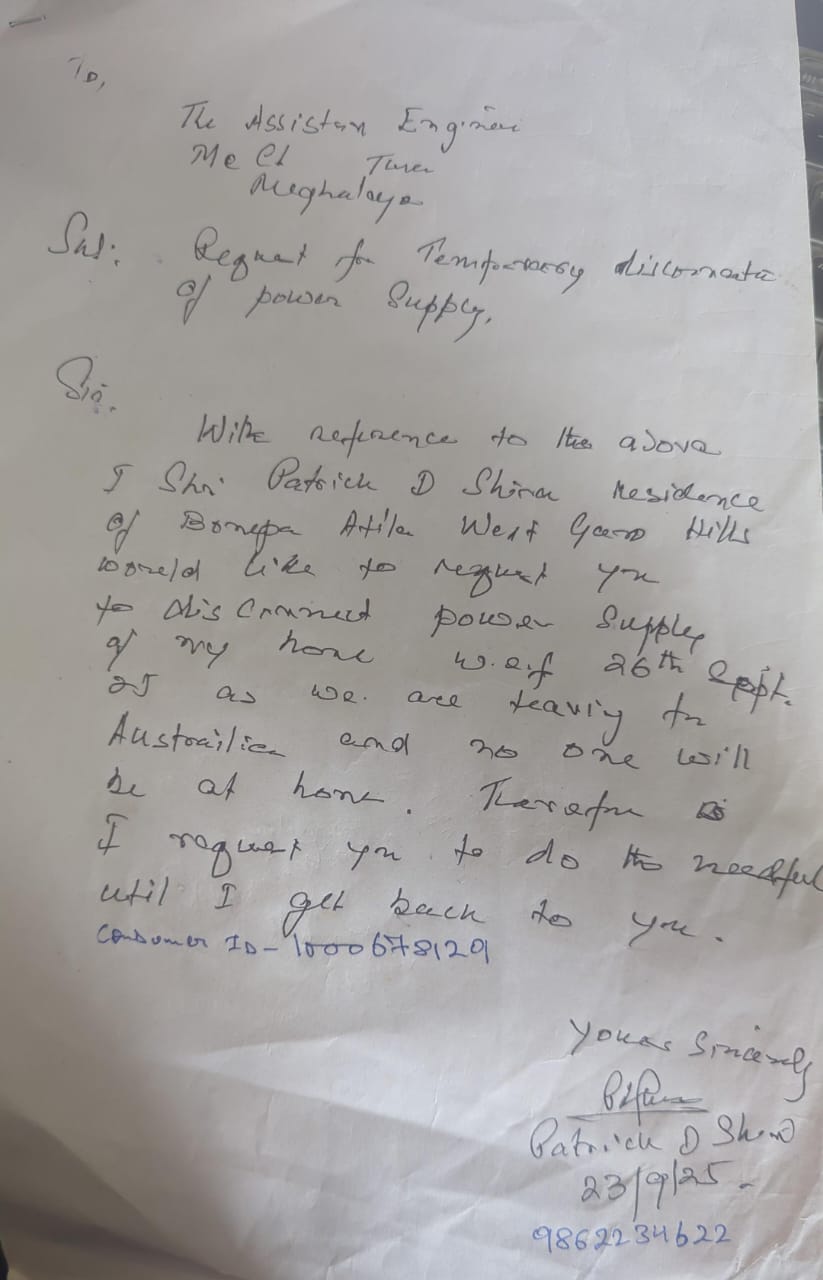 To,
The Assistan Engineer
MeCl Tura
Meghalaya
Sub: Request for Temporary disconnectio
of power Supply,
Sir.
With reference to the above
I Shri Patrick D Shira residence
of Bonepa Atila West Garo Hills
would like to request you
to disconnect power supply
of my home w.e.f 26th Sept.
25 as we are leaving to
Austrailia and no one will
be at home. Therefore
I request you to do the needful
util I get back to you.
Consumer ID - 1000678129
Yours Sincerely
Patrick D Shira
23/9/25.
9862234622